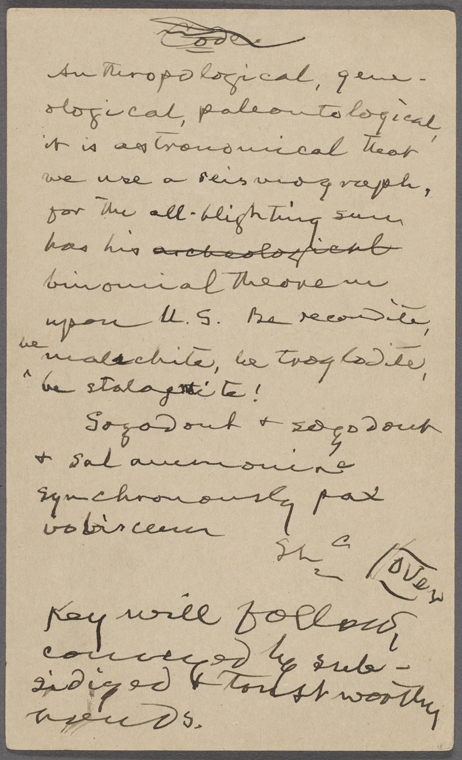 Code.
Anthropological, gene-
ological, paleontological,
it is astronomical that
we use a seismograph,
for the all-blighting sun
has his archeological
binomial theorem
upon U.S. Be recondite,
be malachite, be troglodite,
be stalagmite!
Sozodont & sozodont
& sal ammoniac
synchronously pax
vobiscum
(Over
Key will follow,
conveyed by sub-
sidized & trustworthy